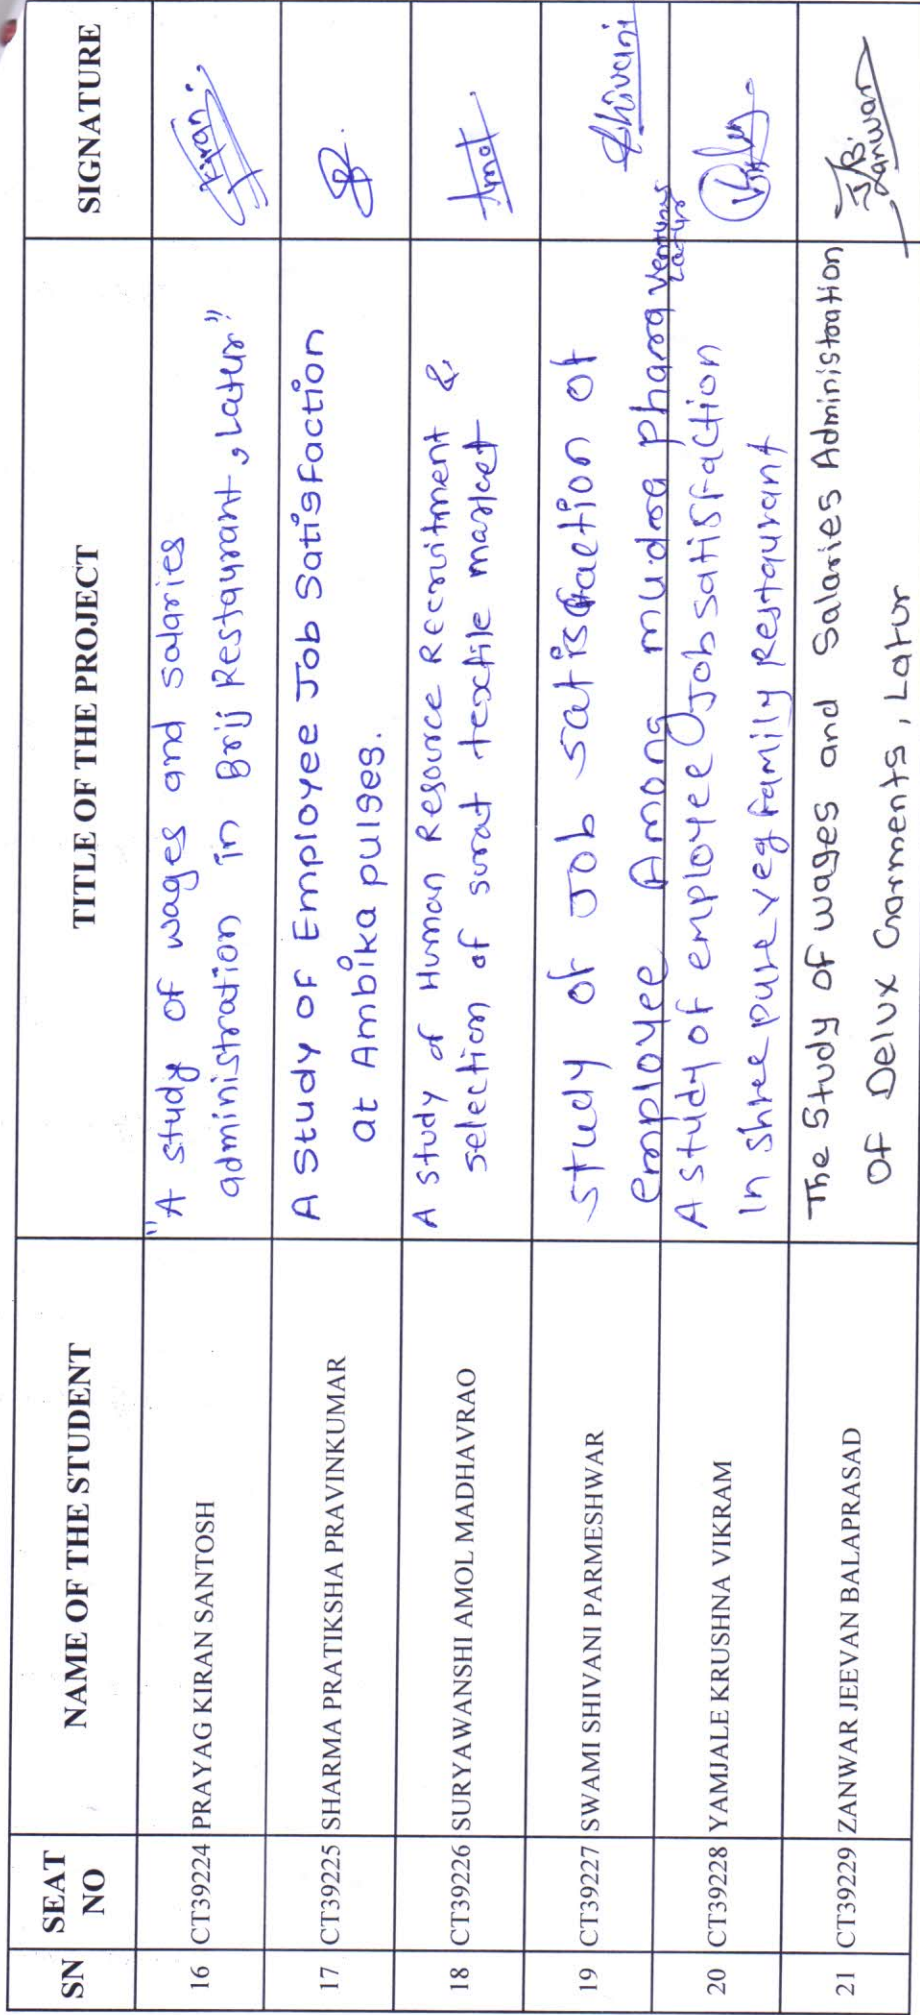 SN SEAT NO NAME OF THE STUDENT TITLE OF THE PROJECT SIGNATURE
16 CT39224 PRAYAG KIRAN SANTOSH "A study of wages and salaries
administration in Brij Restaurant, Latur" Kiran
17 CT39225 SHARMA PRATIKSHA PRAVINKUMAR A Study OF Employee Job Satisfaction
at Ambika pulses.
18 CT39226 SURYAWANSHI AMOL MADHAVRAO A study of Human Resource Recruitment &
selection of surat textile market Amol
19 CT39227 SWAMI SHIVANI PARMESHWAR study of Job satisfaction of
employee Among mudra Pharma Ventures
Latur Shivani
20 CT39228 YAMJALE KRUSHNA VIKRAM A study of employee Job satisfaction
In Shree pure veg family Restaurant
21 CT39229 ZANWAR JEEVAN BALAPRASAD The Study of wages and Salaries Administration
OF Delux Garments, Latur J.B. Zanwar